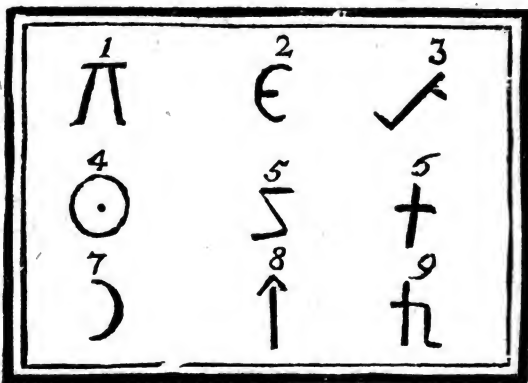 1 2 3
π ϵ
4 5 5
☉ †
7 8 9
☽ ↑ ♄